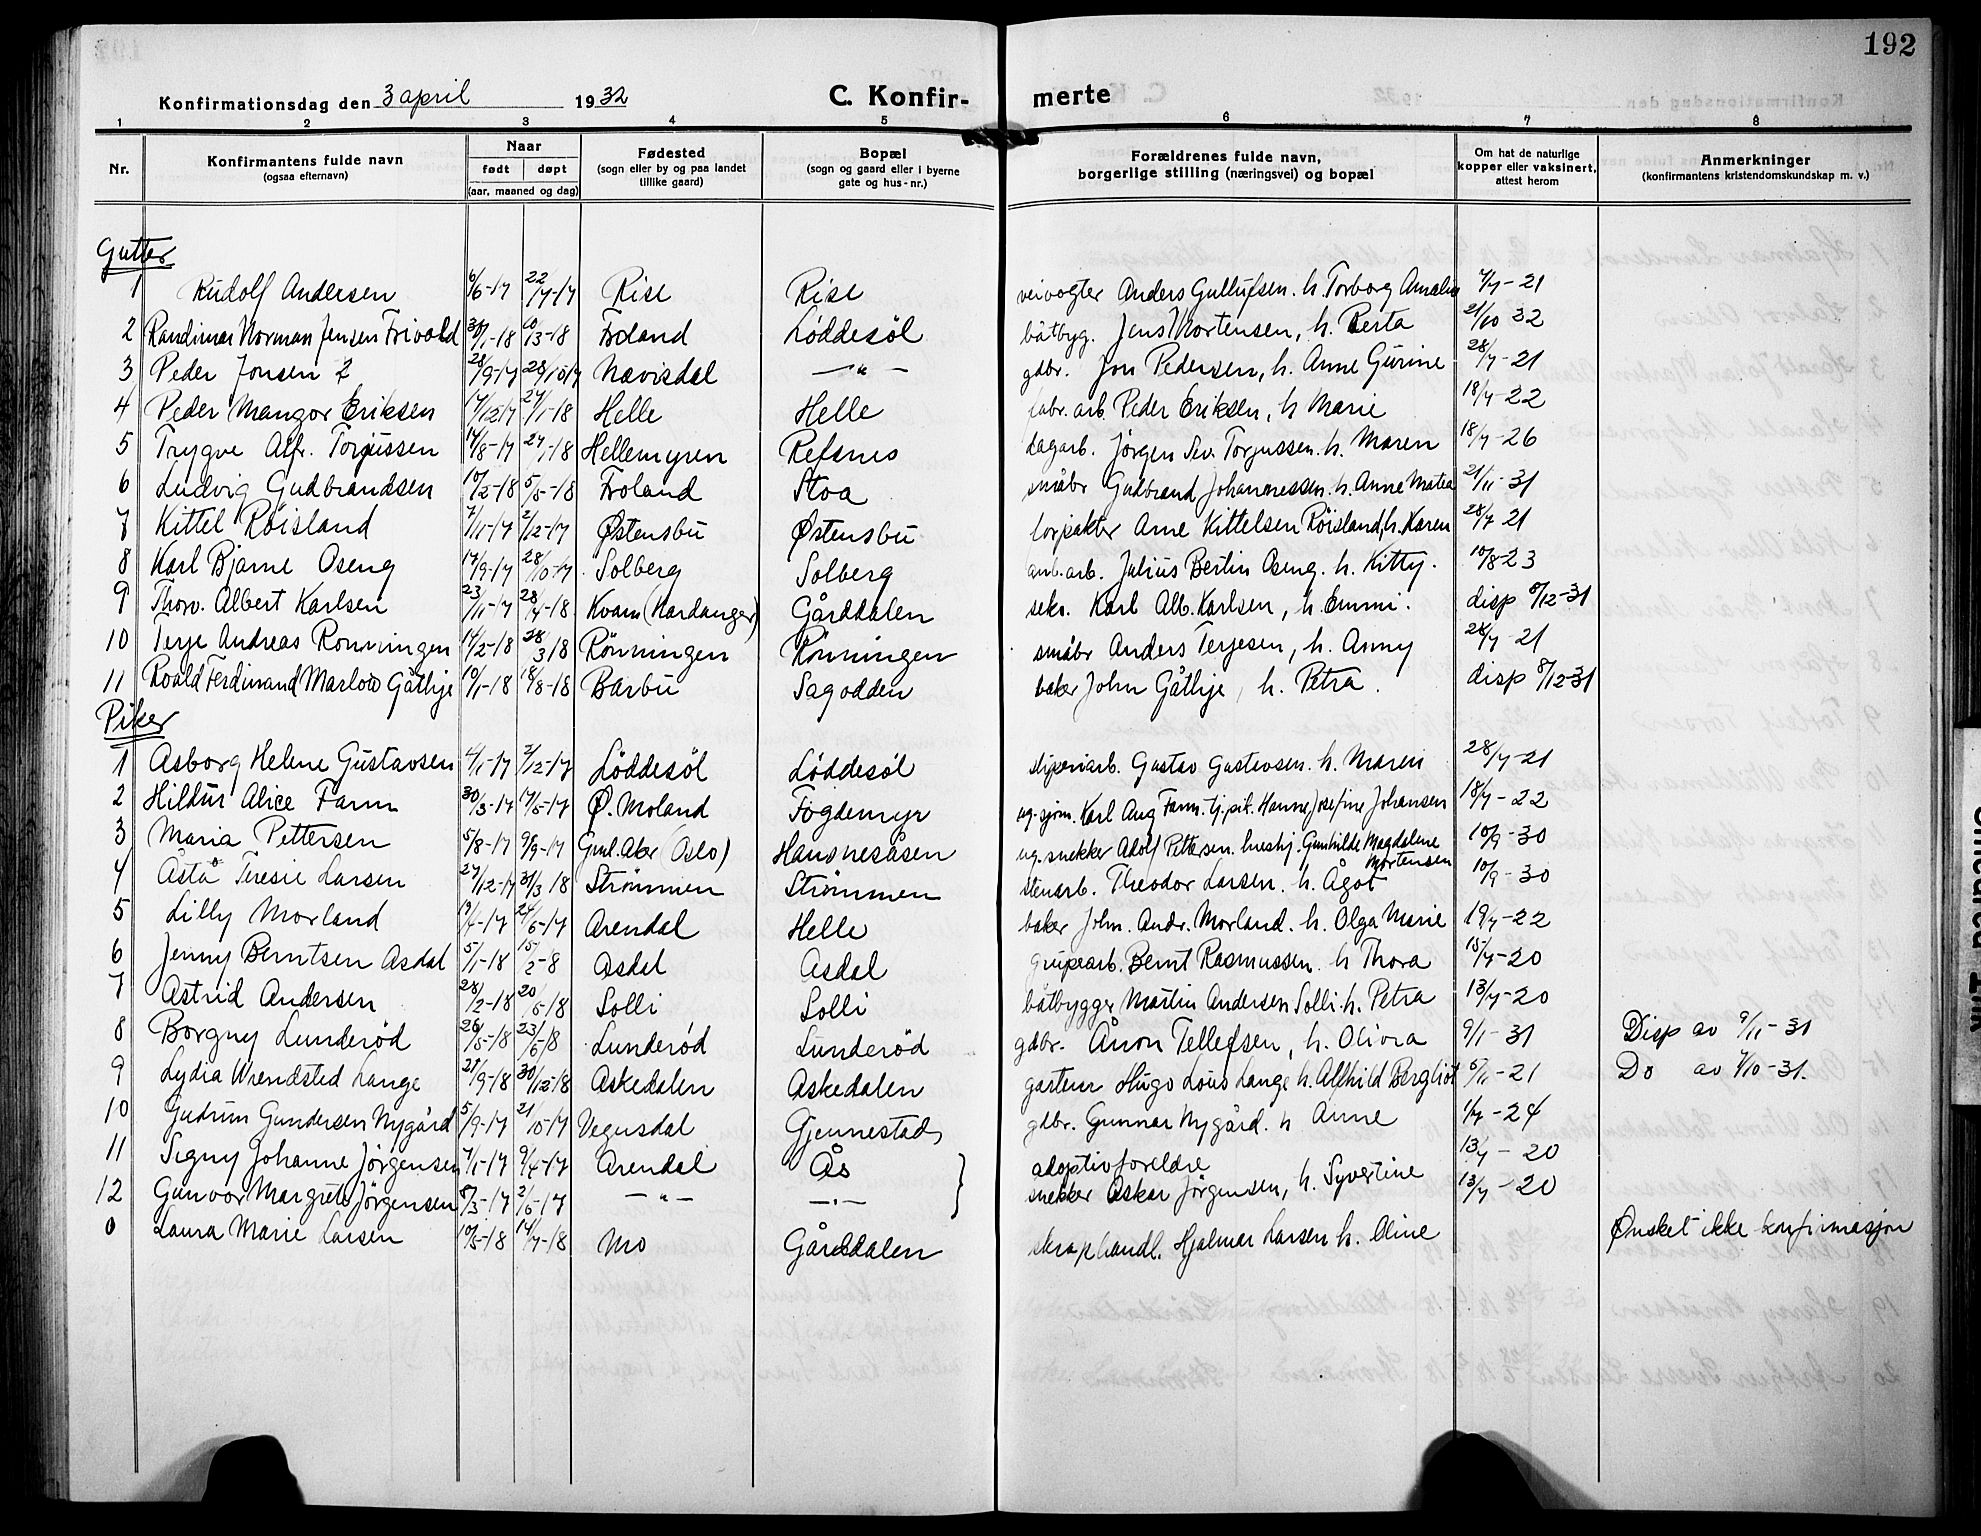 192
Konfirmationsdag den 3 april 1932 C. Konfir- merte
1 2 3 4 5 6 7 8
Nr. Konfirmantens fulde navn (ogsaa efternavn) Naar født døpt (aar, maaned og dag) Fødested (sogn eller by og paa landet tillike gaard) Bopæl (sogn og gaard eller i byerne gate og hus-nr.) Forældrenes fulde navn, borgerlige stilling (næringsvei) og bopæl Om hat de naturlige kopper eller vaksinert, attest herom Anmerkninger (konfirmantens kristendomskundskap m. v.)
Gutter
1 Rudolf Andersen 6/6-17 22/7-17 Rise Rise veivogter Anders Gullufsen. h. Torborg Amalia 7/7-21
2 Randimar Norman Jensen Frivold 30/1-18 10/3-18 Froland Løddesøl båtbyg. Jens Mortensen, h. Berta 21/10 32
3 Peder Jonsen 28/9-17 28/10 17 Nævisdal —"— gdbr. Jon Pedersen, h. Anne Gurine 28/7-21
4 Peder Mangor Eriksen 17/12 17 27/1-18 Helle Helle fabr. arb. Peder Eriksen, h Marie 18/7-22
5 Trygve Alfr. Torjussen 14/8-17 27/1-18 Hellemyren Refsnes dagarb. Jörgen Sev. Torjussen. h. Maren 18/7-26
6 Ludvig Gudbrandsen 10/2-18 5/5-18 Froland Stoa småbr Gudbrand Johannessen. h. Anne Matea 21/11-31
7 Kittel Röisland 7/11-17 2/12-17 Østensbu Østensbu forpakter Arne Kittelsen Röisland, h. Karen 28/7 21
8 Karl Bjarne Oseng 17/9-17 28/10-17 Solberg Solberg anl. arb. Julius Berlin Oseng. h. Kitty. 10/8-23
9 Thorv. Albert Karlsen 23/11-17 28/4-18 Kvam (Hardanger) Gårddalen sekr. Karl Alb. Karlsen, h. Emmi. disp 8/12-31
10 Terje Andreas Rönningen 14/2-18 28/3 18 Rönningen Rönningen småbr Anders Terjesen, h. Anny 28/7-21
11 Roald Ferdinand Marlow Gåthje 10/1-18 18/8-18 Barbu Sagodden baker John Gåthje, h. Petra. disp 8/12-31
Piker
1 Asborg Helene Gustavsen 4/1-17 2/12-17 Løddesöl Løddesöl sliperiarb. Gustav Gustavsen. h. Maren 28/7-21
2 Hildur Alice Farm 30/3-17 17/5-17 Ø. Moland Fogdemyr ug. sjöm. Karl Aug Farm. tj. pik. Hanne Josefine Johansen 18/7-22
3 Maria Pettersen 5/8-17 9/9-17 Gml. Aker (Oslo) Hausnesåsen ug. snekker Adolf Pettersen. hushj. Gunhilde Magdalene Mortensen 10/9-30
4 Asta Teresie Larsen 27/12-17 31/3 18 Strömmen Strömmen stenarb. Theodor Larsen. h. Ågot 10/9-30
5 Lilly Morland 19/4-17 24/6-17 Arendal Helle baker John. Andr. Morland. h. Olga Marie 19/7-22
6 Jenny Berntsen Asdal 5/1-18 15/2-8 Asdal Asdal grupearb. Bernt Rasmussen. h Thora 15/7-20
7 Astrid Andersen 28/2-18 20/5-18 Solli Solli båtbygger Martin Andersen Solli. h. Petra 13/7-20
8 Borgny Lunderöd 26/3-18 23/5-18 Lunderöd Lunderöd gdbr. Ånon Tellefsen, h. Olivia 9/1-31 Disp av 9/11-31
9 Lydia Wrendsted Lange 21/9-18 30/12-18 Askedalen Askedalen gartner Hugo Louis Lange h. Alfhild Bergliot 5/11-21 Do av 7/10-31.
10 Gudrun Gundersen Nygård 5/9-17 21/10-17 Vegusdal Gjennestad gdbr. Gunnar Nygård. h Anne 1/7-24
11 Signy Johanne Jörgensen 7/1-17 9/4-17 Arendal Ås adoptivforeldre 13/7-20
12 Gunvor Margrete Jörgensen 8/3-17 2/6-17 —"— —"— snekker Oskar Jörgensen, h. Syvertine 13/7-20
0 Laura Marie Larsen 10/5-18 14/7-18 Mo Gårddalen skraphandl. Hjalmar Larsen h. Oline Ønsket ikke konfirmasjon